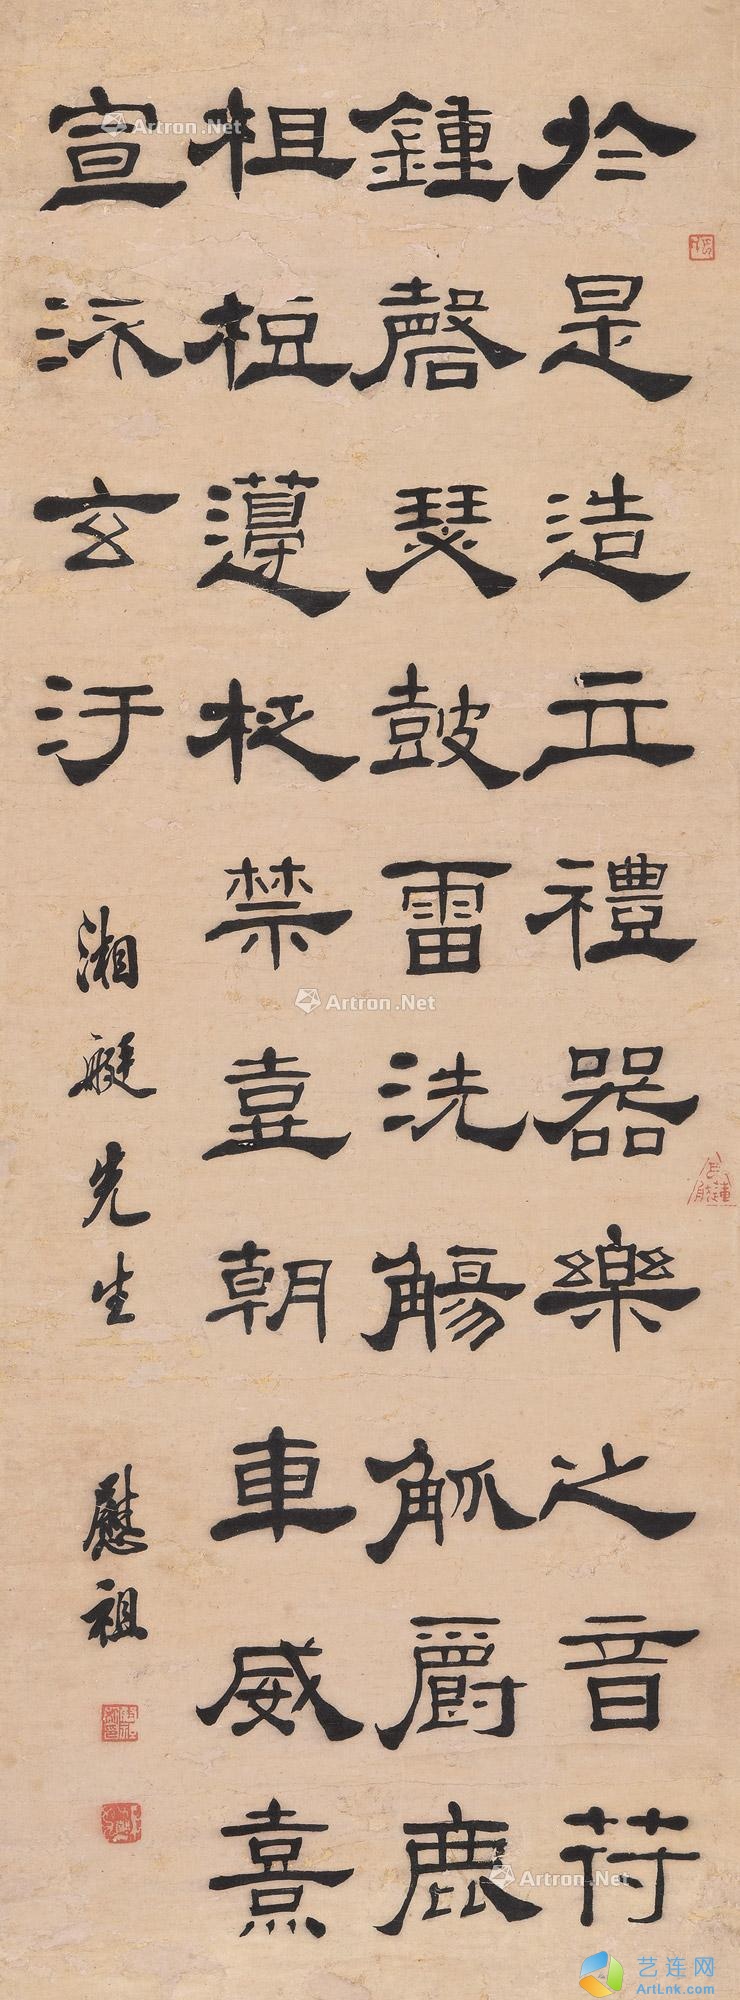 於是造立禮器樂之音苻
鍾磬瑟鼓雷洗觴觚爵鹿
柤梪籩柉禁壺朝車威熹
宣沠玄汙
湘艇先生
慰祖
Artron.Net
Artron.Net
Artron.Net
艺连网
ArtLnk.com